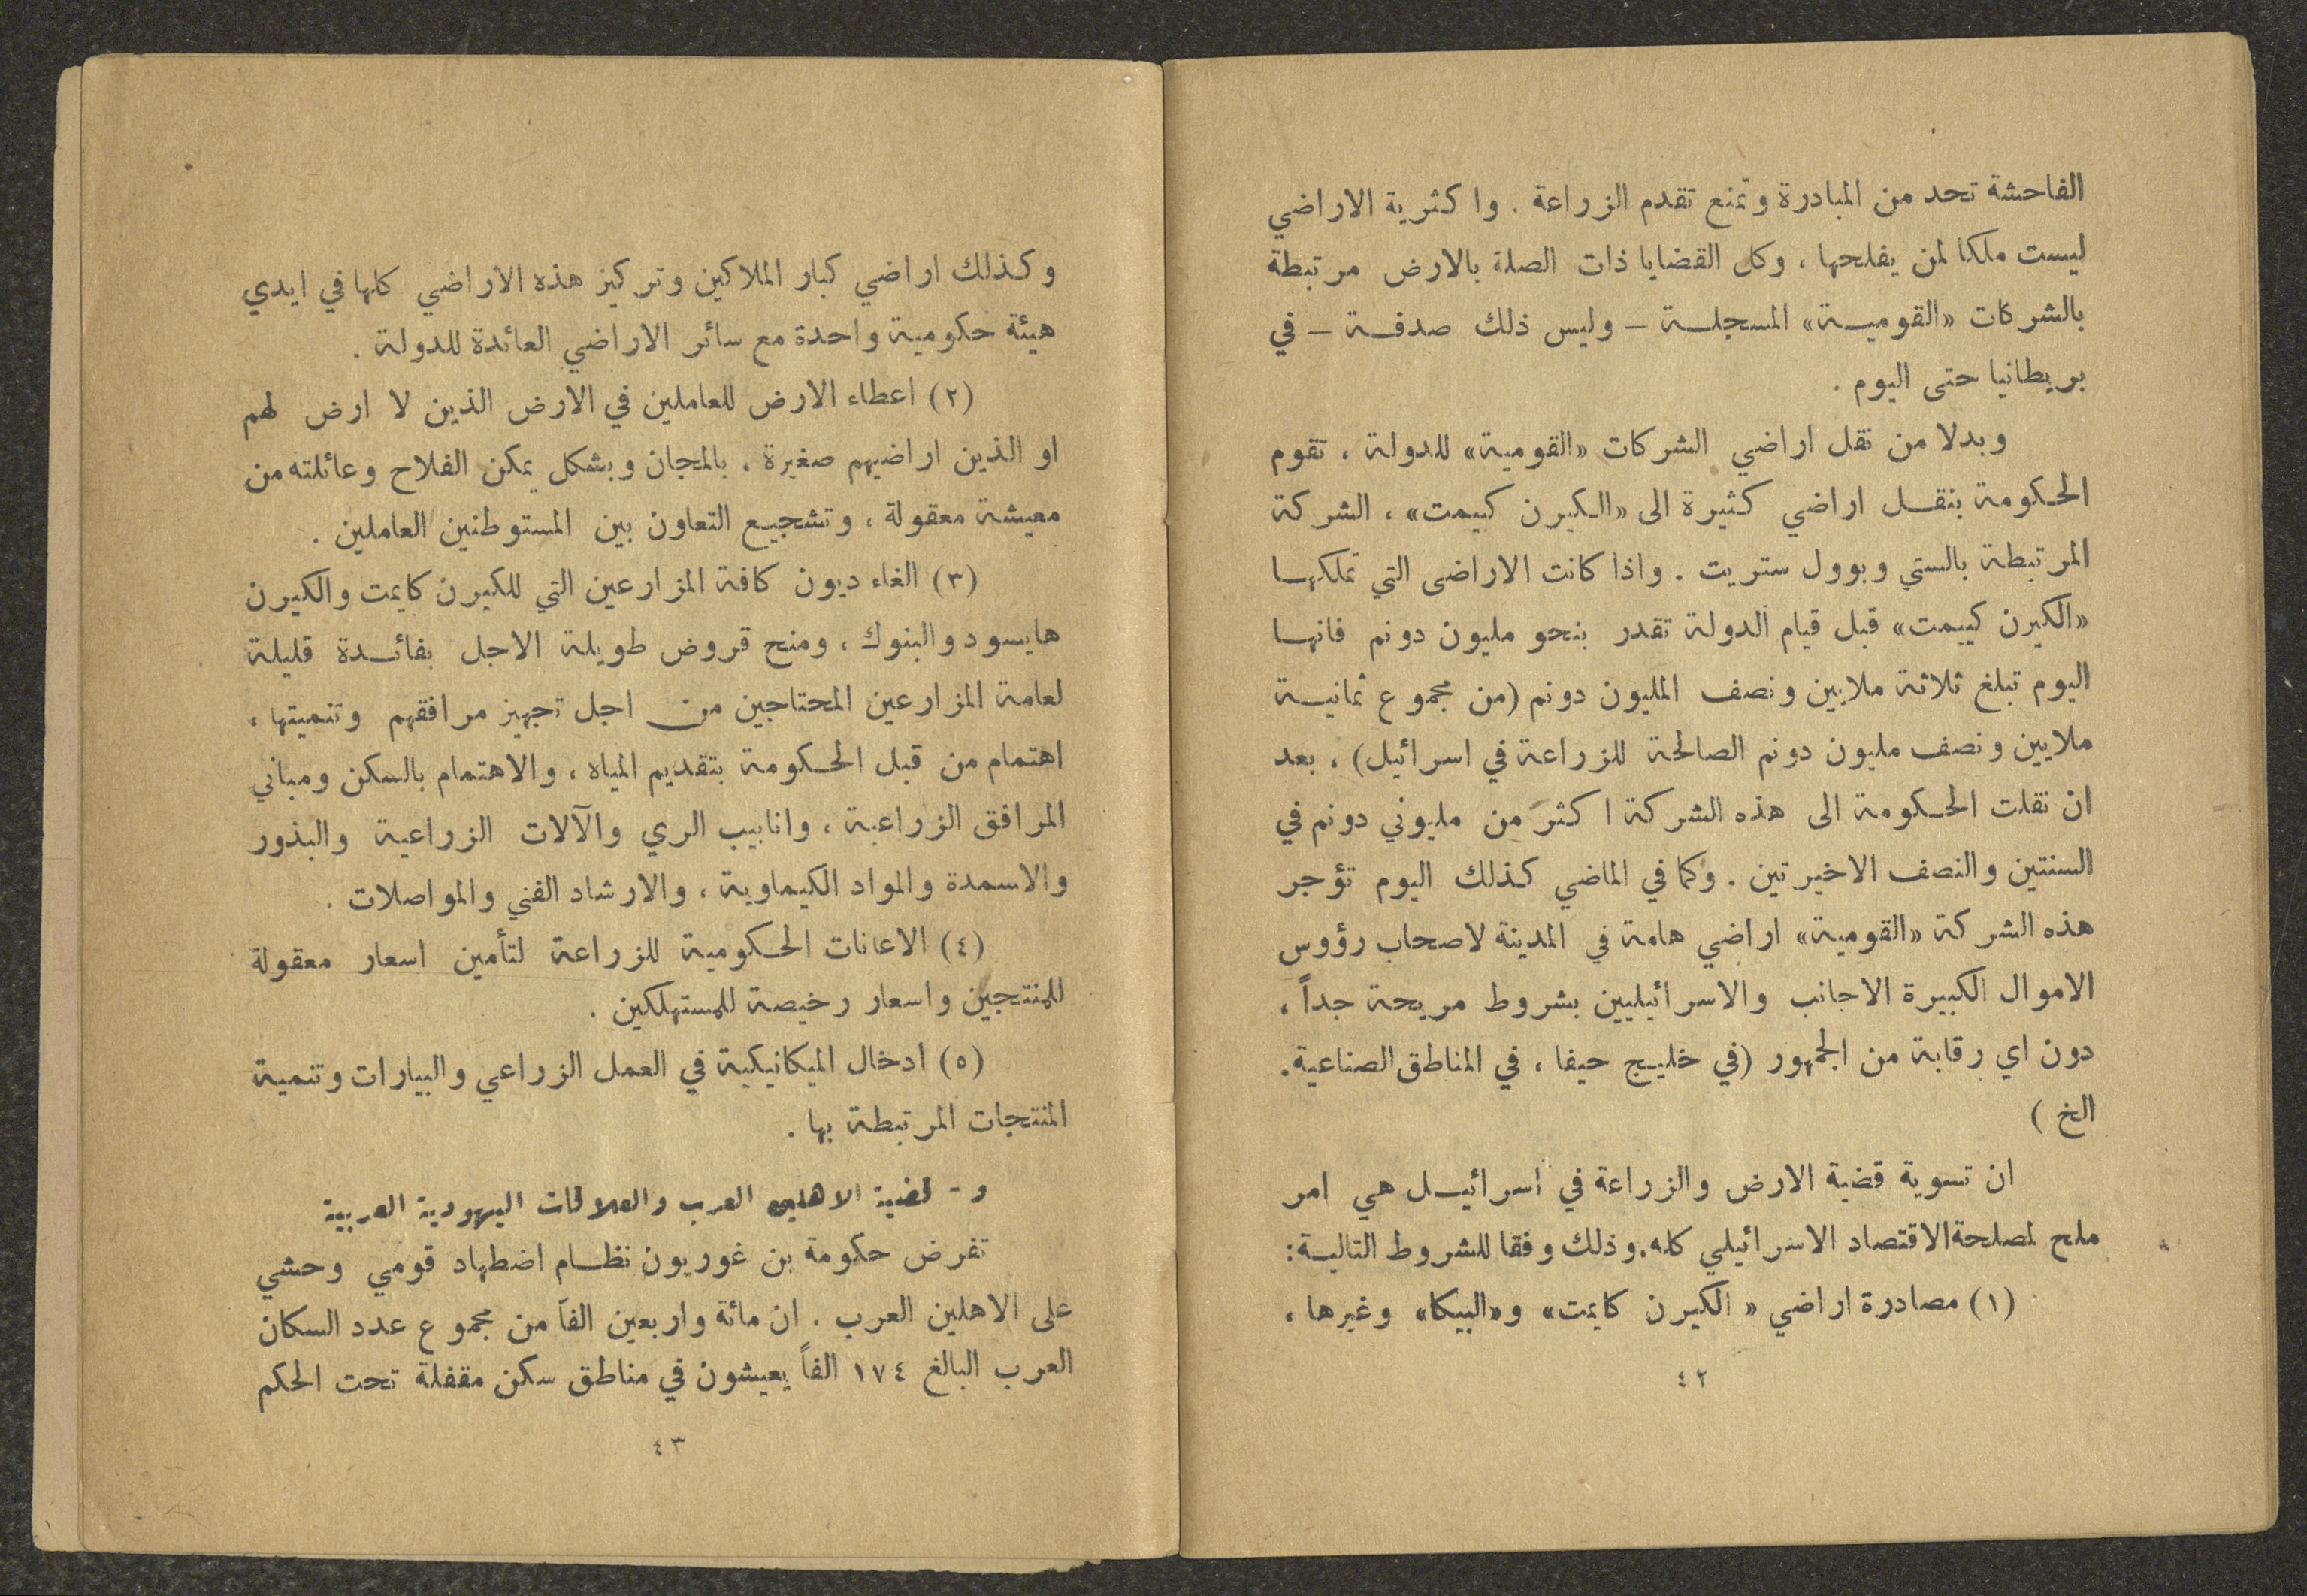 الفاحشة تحد من المبادرة وتمنع تقدم الزراعة . واكثرية الاراضي
ليست ملكا لمن يفلحها ، وكل القضايا ذات الصلة بالارض مرتبطة
بالشركات «القومية» المسجلة – وليس ذلك صدفة – في
بريطانيا حتى اليوم .
وبدلا من نقل اراضي الشركات «القومية» للدولة ، تقوم
الحكومة بنقل اراضي كثيرة الى «الكيرن كييمت» ، الشركة
المرتبطة بالستي وبوول ستريت . واذا كانت الاراضى التي تملكها
«الكيرن كييمت» قبل قيام الدولة تقدر بنحو مليون دونم فانها
اليوم تبلغ ثلاثة ملايين ونصف المليون دونم (من مجموع ثمانية
ملايين ونصف مليون دونم الصالحة للزراعة في اسرائيل) ، بعد
ان نقلت الحكومة الى هذه الشركة اكثر من مليوني دونم في
السنتين والنصف الاخيرتين . وكما في الماضي كذلك اليوم تؤجر
هذه الشركة «القومية» اراضي هامة في المدينة لاصحاب رؤوس
الاموال الكبيرة الاجانب والاسرائيليين بشروط مريحة جداً ،
دون اي رقابة من الجمهور (في خليج حيفا ، في المناطق الصناعية.
الخ )
ان تسوية قضية الارض والزراعة في اسرائيل هي امر
ملح لمصلحة الاقتصاد الاسرائيلي كله. وذلك وفقا للشروط التالية:
(١) مصادرة اراضي « الكيرن كايمت» و«البيكا» وغيرها ،
٤٢
وكذلك اراضي كبار الملاكين وتركيز هذه الاراضي كلها في ايدي
هيئة حكومية واحدة مع سائر الاراضي العائدة للدولة .
(٢) اعطاء الارض للعاملين في الارض الذين لا ارض لهم
او الذين اراضيهم صغيرة ، بالمجان وبشكل يمكن الفلاح وعائلته من
معيشة معقولة ، وتشجيع التعاون بين المستوطنين العاملين .
(٣) الغاء ديون كافة المزارعين التي للكيرن كايمت والكيرن
هايسود والبنوك ، ومنح قروض طويلة الاجل بفائدة قليلة
لعامة المزارعين المحتاجين من اجل تجهيز مرافقهم وتنميتها ،
اهتمام من قبل الحكومة بتقديم المياه ، والاهتمام بالسكن ومباني
المرافق الزراعية ، وانابيب الري والآلات الزراعية والبذور
والاسمدة والمواد الكيماوية ، والارشاد الفني والمواصلات .
(٤) الاعانات الحكومية للزراعة لتأمين اسعار معقولة
للمنتجين واسعار رخيصة للمستهلكين .
(٥) ادخال الميكانيكية في العمل الزراعي والبيارات وتنمية
المنتجات المرتبطة بها .
و - قضية الاهلين العرب والعلاقات اليهودية العربية
تفرض حكومة بن غوريون نظام اضطهاد قومي وحشي
على الاهلين العرب . ان مائة واربعين الفاً من مجموع عدد السكان
العرب البالغ ١٧٤ الفاً يعيشون في مناطق سكن مقفلة تحت الحكم
٤٣